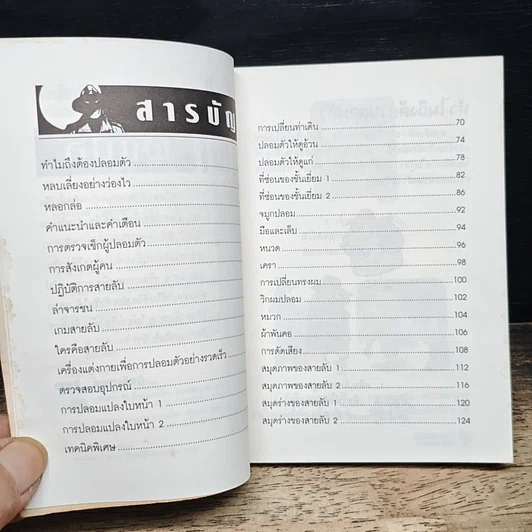 สารบัญ
ทำไมถึงต้องปลอมตัว
หลบเลี่ยงอย่างว่องไว
หลอกล่อ
คำแนะนำและคำเตือน
การตรวจเช็กผู้ปลอมตัว
การสังเกตผู้คน
ปฏิบัติการสายลับ
ล่าจารชน
เกมสายลับ
ใครคือสายลับ
เครื่องแต่งกายเพื่อการปลอมตัวอย่างรวดเร็ว
ตรวจสอบอุปกรณ์
การปลอมแปลงใบหน้า 1
การปลอมแปลงใบหน้า 2
เทคนิคพิเศษ
การเปลี่ยนท่าเดิน 70
ปลอมตัวให้ดูอ้วน 74
ปลอมตัวให้ดูแก่ 78
ที่ซ่อนของชั้นเยี่ยม 1 82
ที่ซ่อนของชั้นเยี่ยม 2 86
จมูกปลอม 92
มือและเล็บ 94
หนวด 96
เครา 98
การเปลี่ยนทรงผม 100
วิกผมปลอม 102
หมวก 104
ผ้าพันคอ 106
การดัดเสียง 108
สมุดภาพของสายลับ 1 112
สมุดภาพของสายลับ 2 116
สมุดร่างของสายลับ 1 120
สมุดร่างของสายลับ 2 124